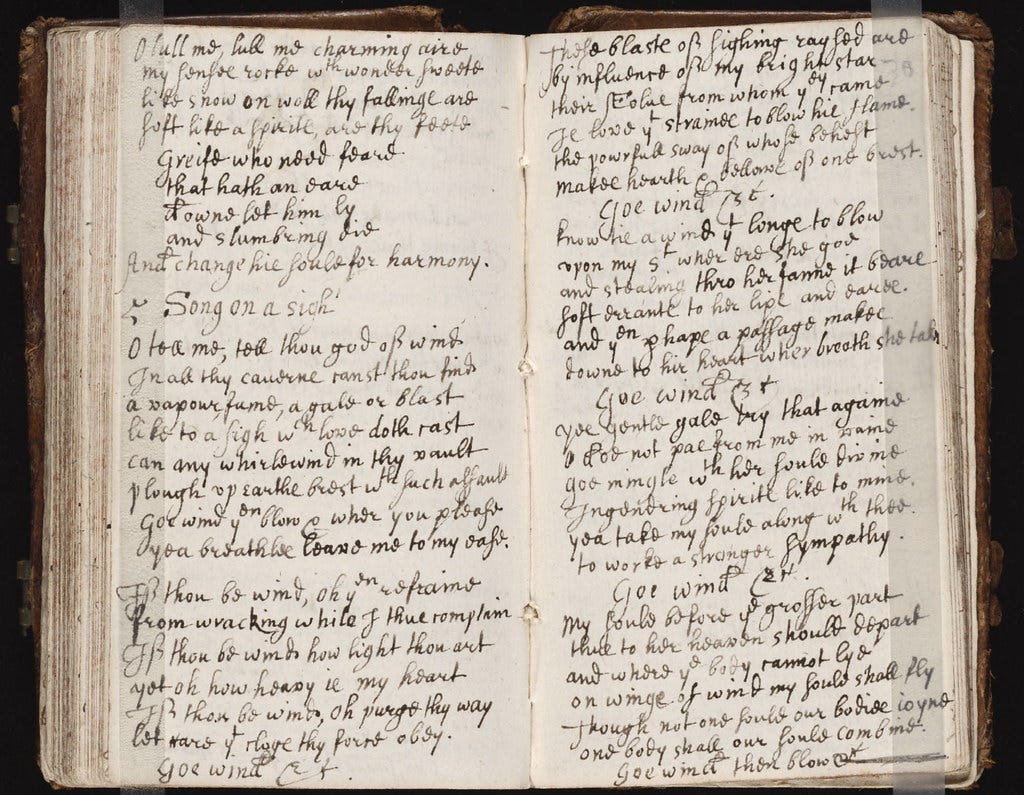 O lull me, lull me charming aire
my senses rocke wth wonder sweete
like snow on wooll thy fallings are
soft like a spirits, are thy feete
Greife who need feare
that hath an eare
downe let him ly
and slumbring die
And change his soule for harmony.
5 Song on a sigh
O tell me, tell thou god of wind
In all thy caverns canst thou find
a vapour, fume, a gale or blast
like to a sigh wch love doth cast
can any whirlewind in thy vault
plough up earths brest wth such assault
Goe wind yen blow & wher you please
yea breathles leave me to my ease.
If thou be wind, oh yen refraine
from wracking while I thus complain
If thou be wind how light thou art
yet oh how heavy is my heart
If thou be wind, oh purge thy way
let care yt clogs thy force obey.
Goe wind &ct.
These blasts of sighing raysed are
by influence of my bright star
their Æolus from whom yey came
Is love yt straines to blow his flame.
the powrfull sway of whose behest
makes hearth & bellows of one brest.
Goe wind &ct.
know tis a wind yt longs to blow
upon my St wher ere she goe
and stealing thro her fanne it beares
soft errants to her lips and eares.
and yen phaps a passage makes
downe to hir heart wher breath she takes
Goe wind &ct
yee gentle gale try that againe
O doe not pas from me in vaine
goe mingle wth her soule divine
Ingendring spirits like to mine.
yea take my soule along wth thee.
to worke a stronger sympathy.
Goe wind &ct.
My soule before ye grosser part
thus to her heaven should depart
and where ye body cannot lye
on wings of wind my soule shall fly
Though not one soule our bodies ioyne
one body shall our souls combine.
Goe wind then blow &ct